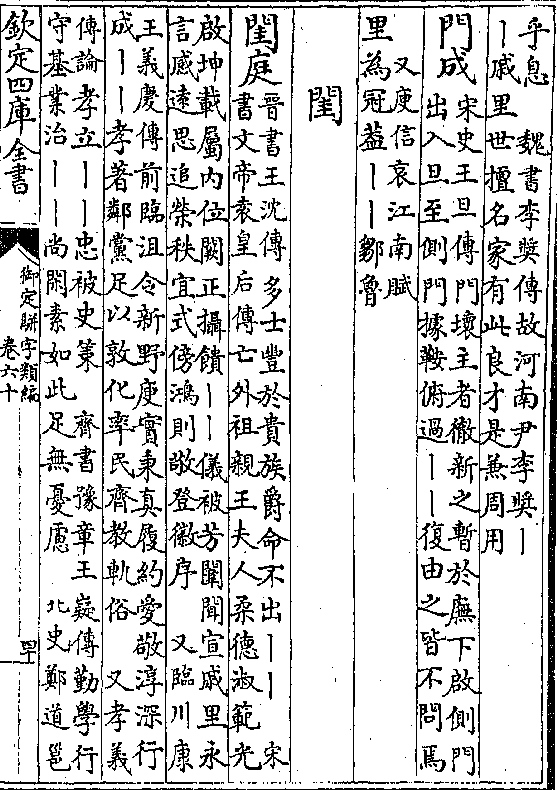 乎息 魏書李奬傳故河南尹李奬丨
丨戚里世擅名家有此良才是兼周用
門成 宋史王旦傳門壞主者徹新之暫於廡下啟側門
出入旦至側門據鞍俯過丨丨復由之皆不問焉
又庾信哀江南賦
里為冠葢丨丨鄒魯
閨
閨庭 晉書王沈傳多士豐於貴族爵命不出丨丨 宋
書文帝袁皇后傳亡外祖親王夫人柔德淑範光
啟坤載屬內位闕正攝饋丨丨儀被芳闈聞宣戚里永
言感遠思追榮秩宜式傍鴻則敬登徽序 又臨川康
王義慶傳前臨沮令新野庾實秉真履約愛敬淳深行
成丨丨孝著鄰黨足以敦化率民齊教軌俗 又孝義
傳論孝立丨丨忠被史策 齊書豫章王嶷傳勤學行
守基業治丨丨尚閑素如此足無憂慮 北史鄭道邕
欽定四庫全書
御定駢字類編
卷六十